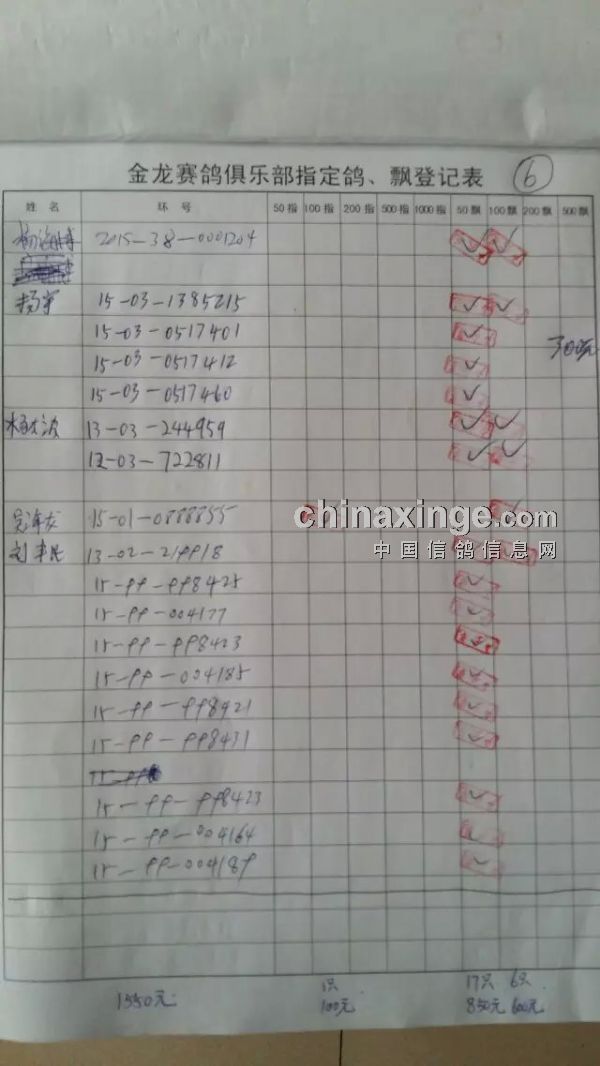 金龙赛鸽俱乐部指定鸽、飘登记表 6
姓名 环号 50指 100指 200指 500指 1000指 50飘 100飘 200飘 500飘
2015-38-0001204 ✓ ✓
杨军 15-03-1385215 ✓ ✓
15-03-0517401 ✓
300元
15-03-0517412 ✓
15-03-0517460 ✓
13-03-244959 ✓ ✓
13-03-722811 ✓ ✓
15-01-0888855
chinaxinge.com
中国信鸽信息网
13-02-219918
15-99-998425 ✓
15-99-004177 ✓
15-99-998423
15-99-004185 ✓
15-99-998921 ✓
15-99-998431 ✓
15-99-998423 ✓
15-99-004164 ✓
15-99-004189 ✓
1只 17只 6只
1550元 100元 850元 600元